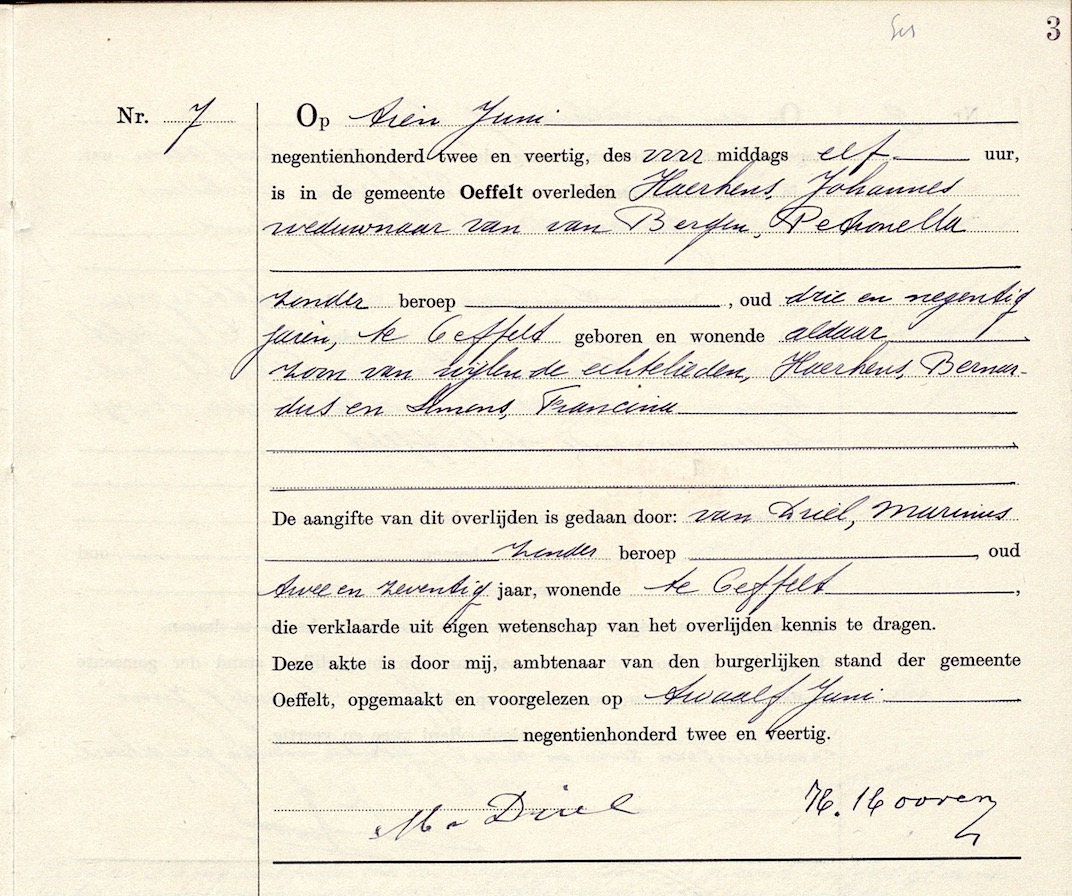 3
Nr. 7
Op tien Juni
negentienhonderd twee en veertig, des voor middags elf uur,
is in de gemeente Oeffelt overleden Haerkens, Johannes
weduwnaar van van Bergen, Petronella
zonder beroep , oud drie en negentig
jaren, te Oeffelt geboren en wonende aldaar
zoon van wijlen de echtelieden, Haerkens, Bernar-
dus en Simons, Francina
De aangifte van dit overlijden is gedaan door: van Driel, Marinus
zonder beroep , oud
twee en zeventig jaar, wonende te Oeffelt ,
die verklaarde uit eigen wetenschap van het overlijden kennis te dragen.
Deze akte is door mij, ambtenaar van den burgerlijken stand der gemeente
Oeffelt, opgemaakt en voorgelezen op twaalf Juni
negentienhonderd twee en veertig.
M v Driel